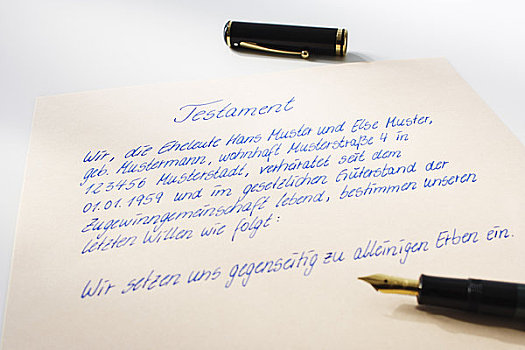 Testament
Wir, die Eheleute Hans Muster und Else Muster,
geb. Mustermann, wohnhaft Musterstraße 4 in
123456 Musterstadt, verheiratet seit dem
01.01.1959 und im gesetzlichen Güterstand der
Zugewinngemeinschaft lebend, bestimmen unseren
letzten Willen wie folgt:
Wir setzen uns gegenseitig zu alleinigen Erben ein.